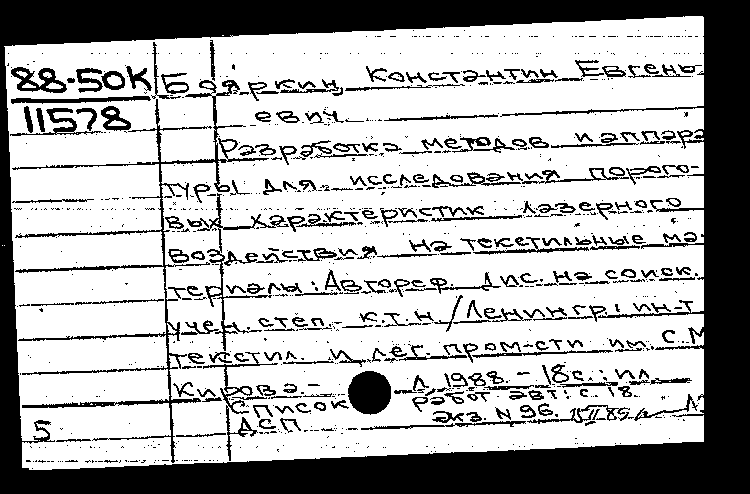 88-50К
11578
Бояркин, Константин Евгень-
евич
Разработка методов и аппара
туры для исследования порого-
вых характеристик лазерного
воздействия на текстильные ма-
териалы: Автореф. дис. на соиск.
учен. степ. к.т.н. /Ленингр. ин-т
текстил. и лег. пром-сти им. С.М
Кирова - Л. 1988. - 18с.: ил.
Список работ авт.: с. 18.
ДСП экз. N 96.
5